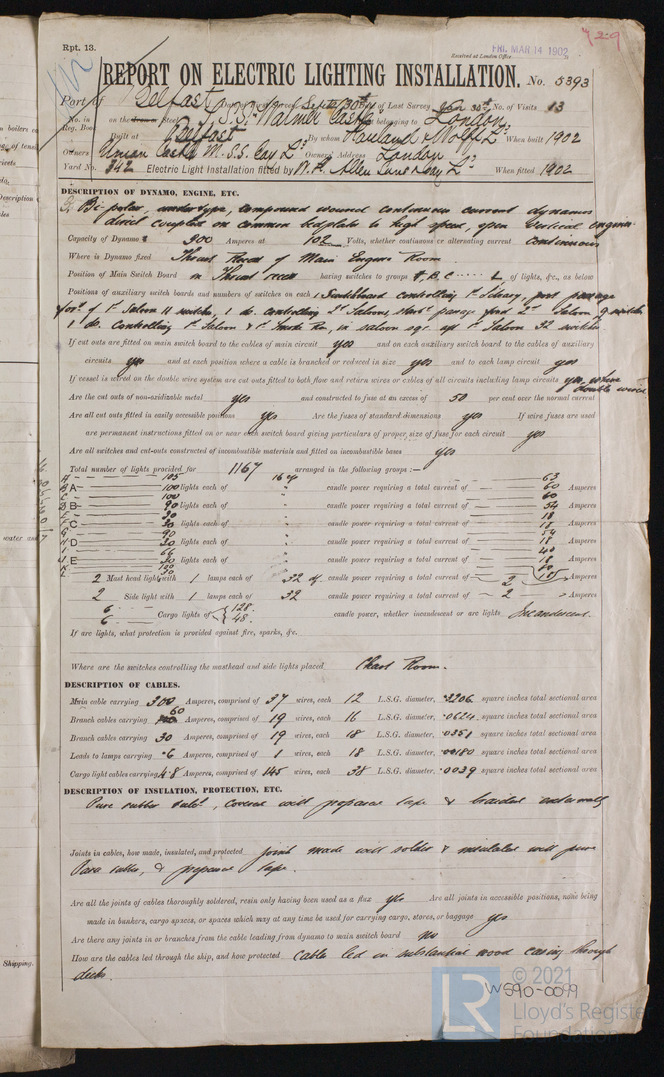 Rpt. 13.
FRI. MAR 14 1902
Received at London Office
REPORT ON ELECTRIC LIGHTING INSTALLATION. No. 5393
Port of Belfast Date of First Survey Sept 30th Date of Last Survey Jan 30th No. of Visits 13
No. in Reg. Book on the Iron or Steel S.S. "Walmer Castle" belonging to London
Built at Belfast By whom Harland & Wolff Ld When built 1902
Owners Union Castle M.S.S. Coy Ld Owners' Address London
Yard No. 342 Electric Light Installation fitted by W. H. Allen Sons & Coy Ld When fitted 1902
DESCRIPTION OF DYNAMO, ENGINE, ETC.
Bi-polar, undertype, compound wound continuous current dynamos
direct coupled on common bedplate to high speed, open vertical engines
Capacity of Dynamos 300 Amperes at 102 Volts, whether continuous or alternating current Continuous
Where is Dynamo fixed Thrust Recess of Main Engine Room
Position of Main Switch Board in Thrust recess having switches to groups A, B, C L of lights, &c., as below
Positions of auxiliary switch boards and numbers of switches on each 1 Switchboard controlling port passage
ford of 1st Saloon 11 switches, 1 do. controlling 2d Saloons, passage ford 2nd Saloon 9 switches
1 do. controlling 1st Saloon & 1st Smoke Rm, in saloon 1st Saloon 32 switches
If cut outs are fitted on main switch board to the cables of main circuit yes and on each auxiliary switch board to the cables of auxiliary
circuits yes and at each position where a cable is branched or reduced in size yes and to each lamp circuit yes
If vessel is wired on the double wire system are cut outs fitted to both flow and return wires or cables of all circuits including lamp circuits yes, where double wired
Are the cut outs of non-oxidizable metal yes and constructed to fuse at an excess of 50 per cent over the normal current
Are all cut outs fitted in easily accessible positions yes Are the fuses of standard dimensions yes If wire fuses are used
are permanent instructions fitted on or near each switch board giving particulars of proper size of fuse for each circuit yes
Are all switches and cut-outs constructed of incombustible materials and fitted on incombustible bases yes
Total number of lights provided for 1167 arranged in the following groups :—
A 105 16 cp 63
B A 100 lights each of candle power requiring a total current of 60 Amperes
C 100 60
B 90 lights each of candle power requiring a total current of 54 Amperes
30 18
C 30 lights each of candle power requiring a total current of 18 Amperes
G 90 54
H D 30 lights each of candle power requiring a total current of 18 Amperes
I 66 40
J E 30 lights each of candle power requiring a total current of 18 Amperes
2 Mast head light with 1 lamps each of 32 cp candle power requiring a total current of 2 Amperes
2 Side light with 1 lamps each of 32 candle power requiring a total current of 2 Amperes
6 Cargo lights of 128 candle power, whether incandescent or arc lights Incandescent.
6 48
If arc lights, what protection is provided against fire, sparks, &c.
Where are the switches controlling the masthead and side lights placed Chart Room.
DESCRIPTION OF CABLES.
Main cable carrying 300 Amperes, comprised of 37 wires, each 12 L.S.G. diameter, .3206 square inches total sectional area
Branch cables carrying 60 Amperes, comprised of 19 wires, each 16 L.S.G. diameter, .0624 square inches total sectional area
Branch cables carrying 30 Amperes, comprised of 19 wires, each 18 L.S.G. diameter, .0351 square inches total sectional area
Leads to lamps carrying .6 Amperes, comprised of 1 wires, each 18 L.S.G. diameter, .00180 square inches total sectional area
Cargo light cables carrying 4.8 Amperes, comprised of 145 wires, each 38 L.S.G. diameter, .0039 square inches total sectional area
DESCRIPTION OF INSULATION, PROTECTION, ETC.
Pure rubber, covered with prepared tape & braided externally
Joints in cables, how made, insulated, and protected Joints made with solder & insulated with pure
Para rubber, & prepared tape.
Are all the joints of cables thoroughly soldered, resin only having been used as a flux yes Are all joints in accessible positions, none being
made in bunkers, cargo spaces, or spaces which may at any time be used for carrying cargo, stores, or baggage yes
Are there any joints in or branches from the cable leading from dynamo to main switch board No
How are the cables led through the ship, and how protected Cables led in substantial wood casing through
decks.
W590-0099
LR © 2021
Lloyd's Register
Foundation
Shipping.